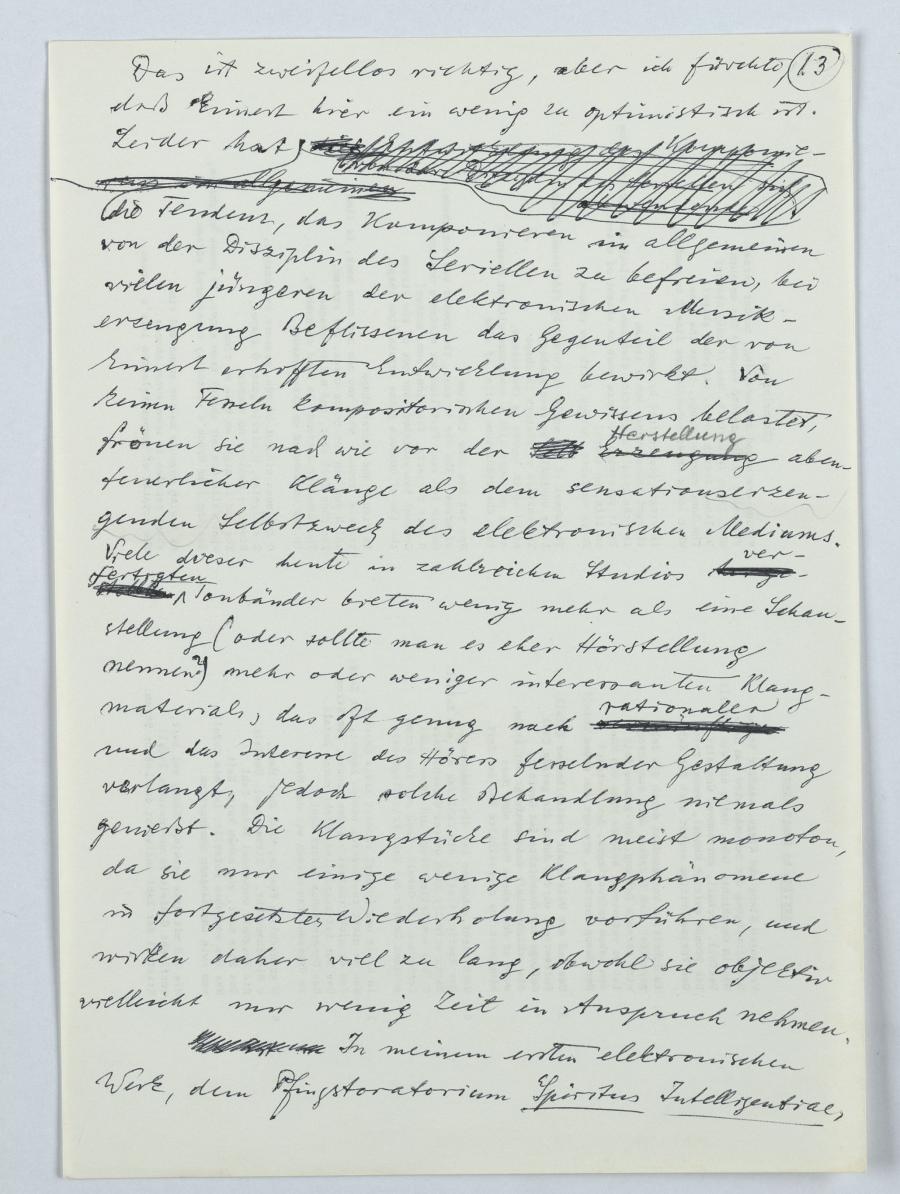 13
Das ist zweifellos richtig, aber ich fürchte,
daß Eimert hier ein wenig zu optimistisch ist.
Leider hat
im allgemeinen
die Tendenz, das Komponieren im allgemeinen
von der Disziplin des Seriellen zu befreien, bei
vielen jüngeren der elektronischen Musik-
erzeugung Beflissenen das Gegenteil der von
Eimert erhofften Entwicklung bewirkt. Von
keinen Fesseln kompositorischen Gewissens belastet,
frönen sie nach wie vor der Erzeugung Herstellung aben-
teuerlicher Klänge als dem sensationserzeu-
genden Selbstzweck des elektronischen Mediums.
Viele dieser heute in zahlreichen Studios ver-
fertigten Tonbänder bieten wenig mehr als eine Schau-
stellung (oder sollte man es eher Hörstellung
nennen?) mehr oder weniger interessanten Klang-
materials, das oft genug nach rationaller
und das Interesse des Hörers fesselnder Gestaltung
verlangt, jedoch solche Behandlung niemals
genießt. Die Klangstücke sind meist monoton,
da sie nur einige wenige Klangphänomene
in fortgesetzter Wiederholung vorführen, und
wirken daher viel zu lang, obwohl sie objektiv
vielleicht nur wenig Zeit in Anspruch nehmen.
In meinem ersten elektronischen
Werk, dem Pfingstoratorium Spiritus Intelligentiae,